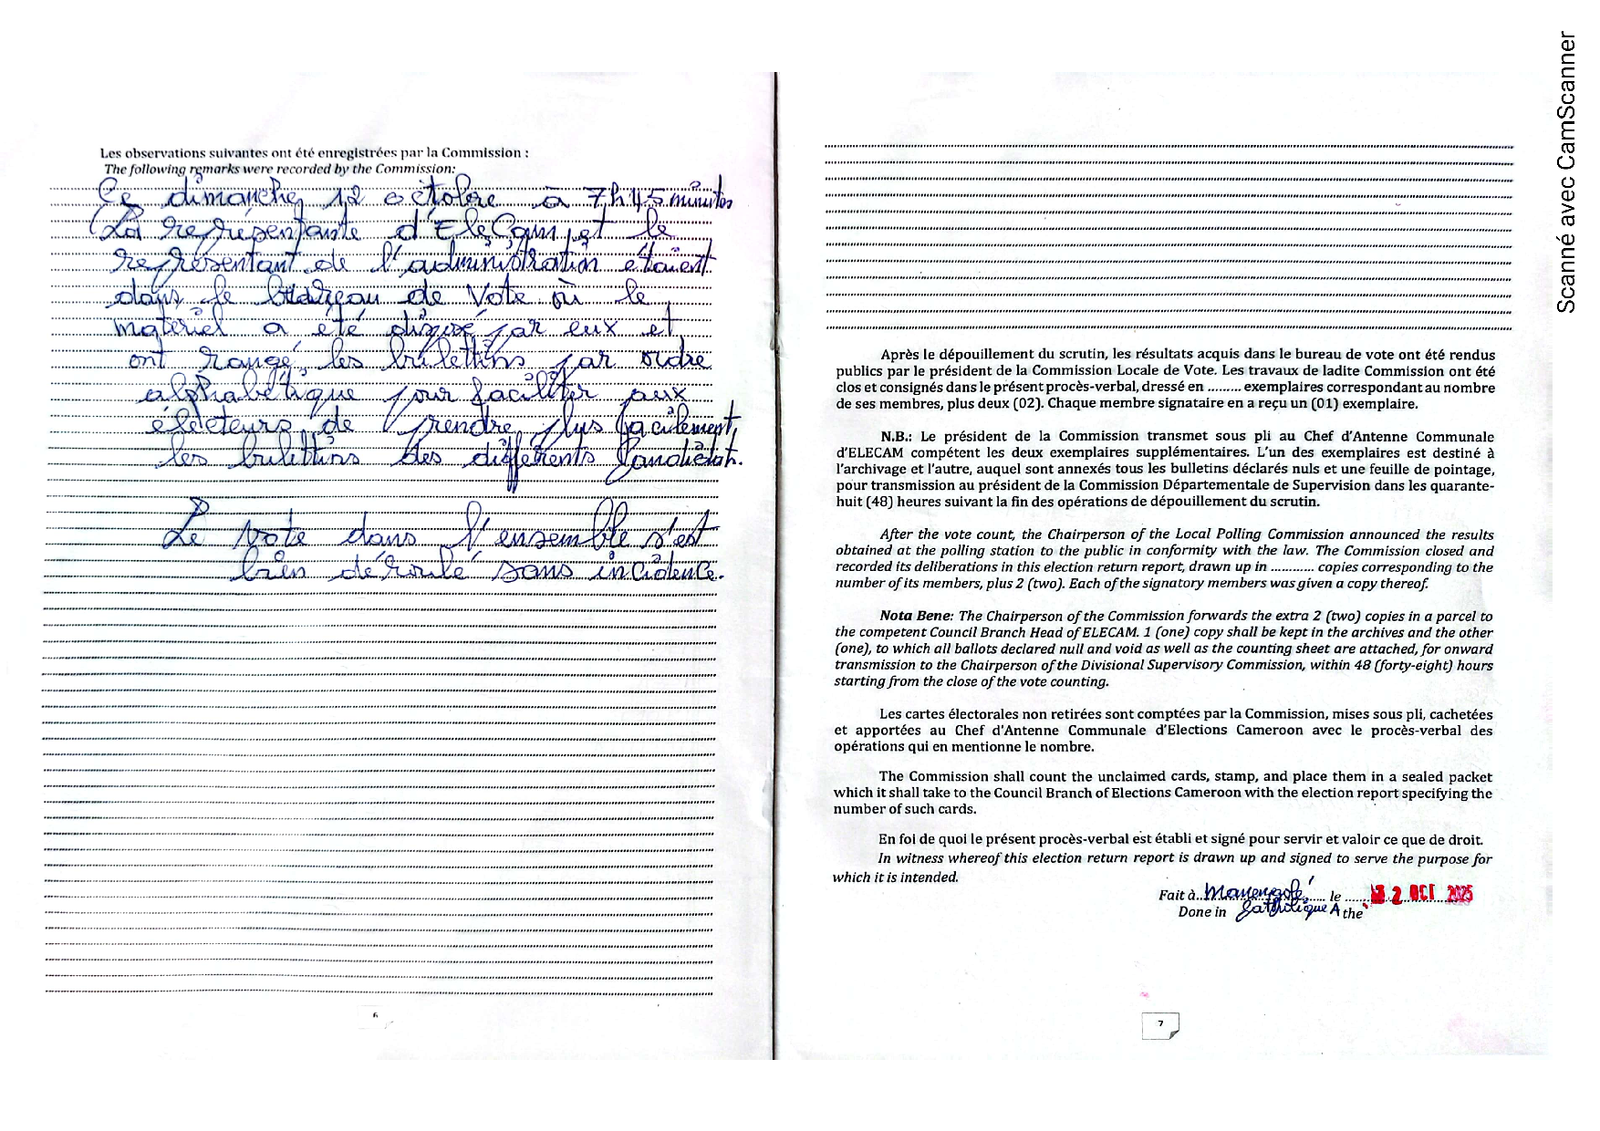 Les observations suivantes ont été enregistrées par la Commission :
The following remarks were recorded by the Commission:
Ce dimanche, 12 octobre à 7h45 minutes
La représentante d'EleCam, et le
représentant de l'administration étaient
dans le bureau de vote où le
matériel a été disposé par eux et
ont rangé les bulettins par ordre
alphabétique pour faciliter aux
électeurs de prendre plus facilement,
les bulettins des différents Candidat.
Le Vote dans l'ensemble s'est
bien déroulé sans incidence.
6
Après le dépouillement du scrutin, les résultats acquis dans le bureau de vote ont été rendus
publics par le président de la Commission Locale de Vote. Les travaux de ladite Commission ont été
clos et consignés dans le présent procès-verbal, dressé en ......... exemplaires correspondant au nombre
de ses membres, plus deux (02). Chaque membre signataire en a reçu un (01) exemplaire.
N.B.: Le président de la Commission transmet sous pli au Chef d'Antenne Communale
d'ELECAM compétent les deux exemplaires supplémentaires. L'un des exemplaires est destiné à
l'archivage et l'autre, auquel sont annexés tous les bulletins déclarés nuls et une feuille de pointage,
pour transmission au président de la Commission Départementale de Supervision dans les quarante-
huit (48) heures suivant la fin des opérations de dépouillement du scrutin.
After the vote count, the Chairperson of the Local Polling Commission announced the results
obtained at the polling station to the public in conformity with the law. The Commission closed and
recorded its deliberations in this election return report, drawn up in ............ copies corresponding to the
number of its members, plus 2 (two). Each of the signatory members was given a copy thereof.
Nota Bene: The Chairperson of the Commission forwards the extra 2 (two) copies in a parcel to
the competent Council Branch Head of ELECAM. 1 (one) copy shall be kept in the archives and the other
(one), to which all ballots declared null and void as well as the counting sheet are attached, for onward
transmission to the Chairperson of the Divisional Supervisory Commission, within 48 (forty-eight) hours
starting from the close of the vote counting.
Les cartes électorales non retirées sont comptées par la Commission, mises sous pli, cachetées
et apportées au Chef d'Antenne Communale d'Elections Cameroon avec le procès-verbal des
opérations qui en mentionne le nombre.
The Commission shall count the unclaimed cards, stamp, and place them in a sealed packet
which it shall take to the Council Branch of Elections Cameroon with the election report specifying the
number of such cards.
En foi de quoi le présent procès-verbal est établi et signé pour servir et valoir ce que de droit.
In witness whereof this election return report is drawn up and signed to serve the purpose for
which it is intended.
Fait à Manengolé le 12 OCT 2025
Done in Catholique A the
7
Scanné avec CamScanner